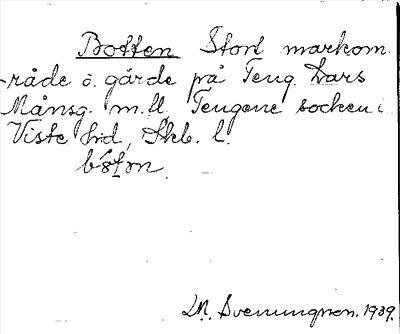 Botten Stort markom-
råde ö. gärde på Teng. Lars
Månsg. m.fl. Tengene socken i
Viste hrd, Skb. l.
LM. Svenungsson. 1939.